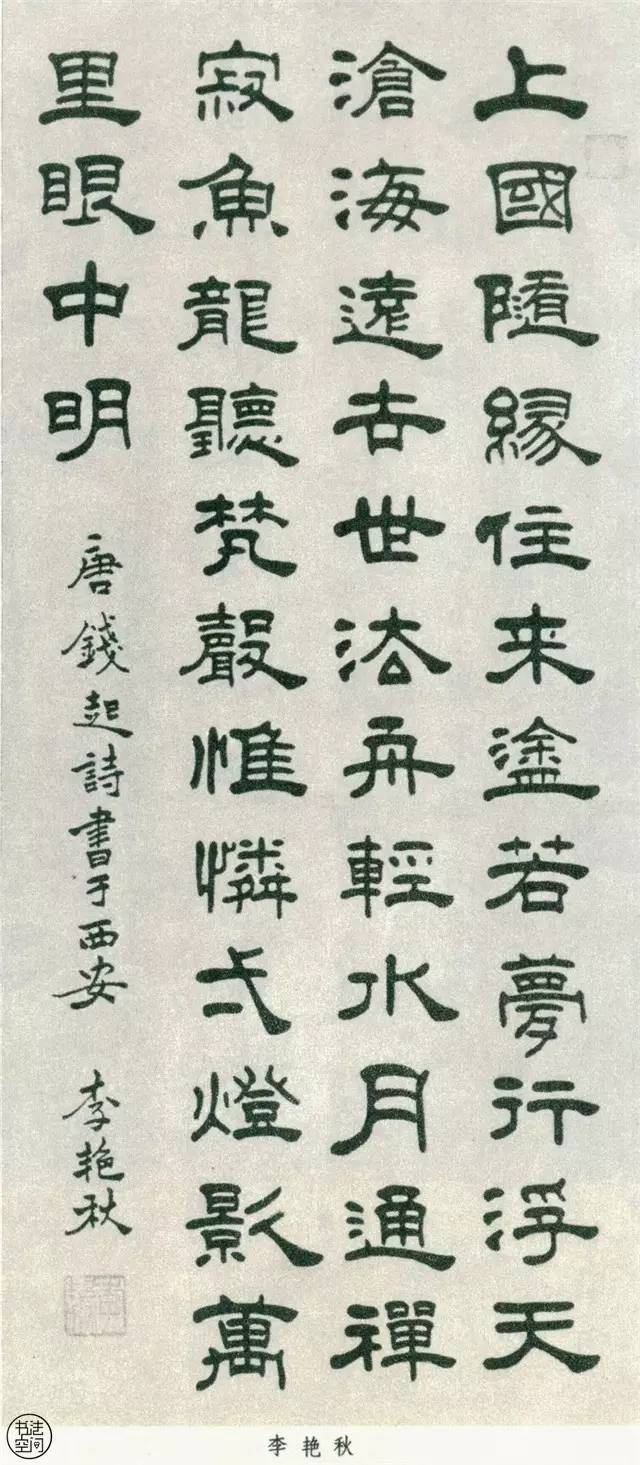 上國隨緣住来塗若夢行浮天
滄海遠去世法舟輕水月通禪
寂魚龍聽梵聲惟憐弌燈影萬
里眼中明 唐錢起詩書于西安 李艳秋
李艳秋
书法
空间